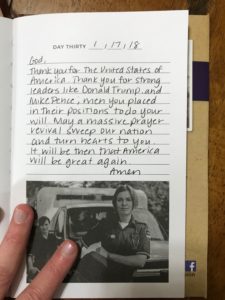 DAY THIRTY 1 / 17 / 18
God,
Thank you for The United States of
America. Thank you for strong
leaders like Donald Trump and
Mike Pence, men you placed
in their positions to do your
will. May a massive prayer
revival sweep our nation
and turn hearts to you.
It will be then that America
will be great again.
Amen